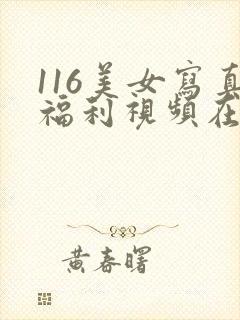 116美女寫真
福利視頻在
黃春曙